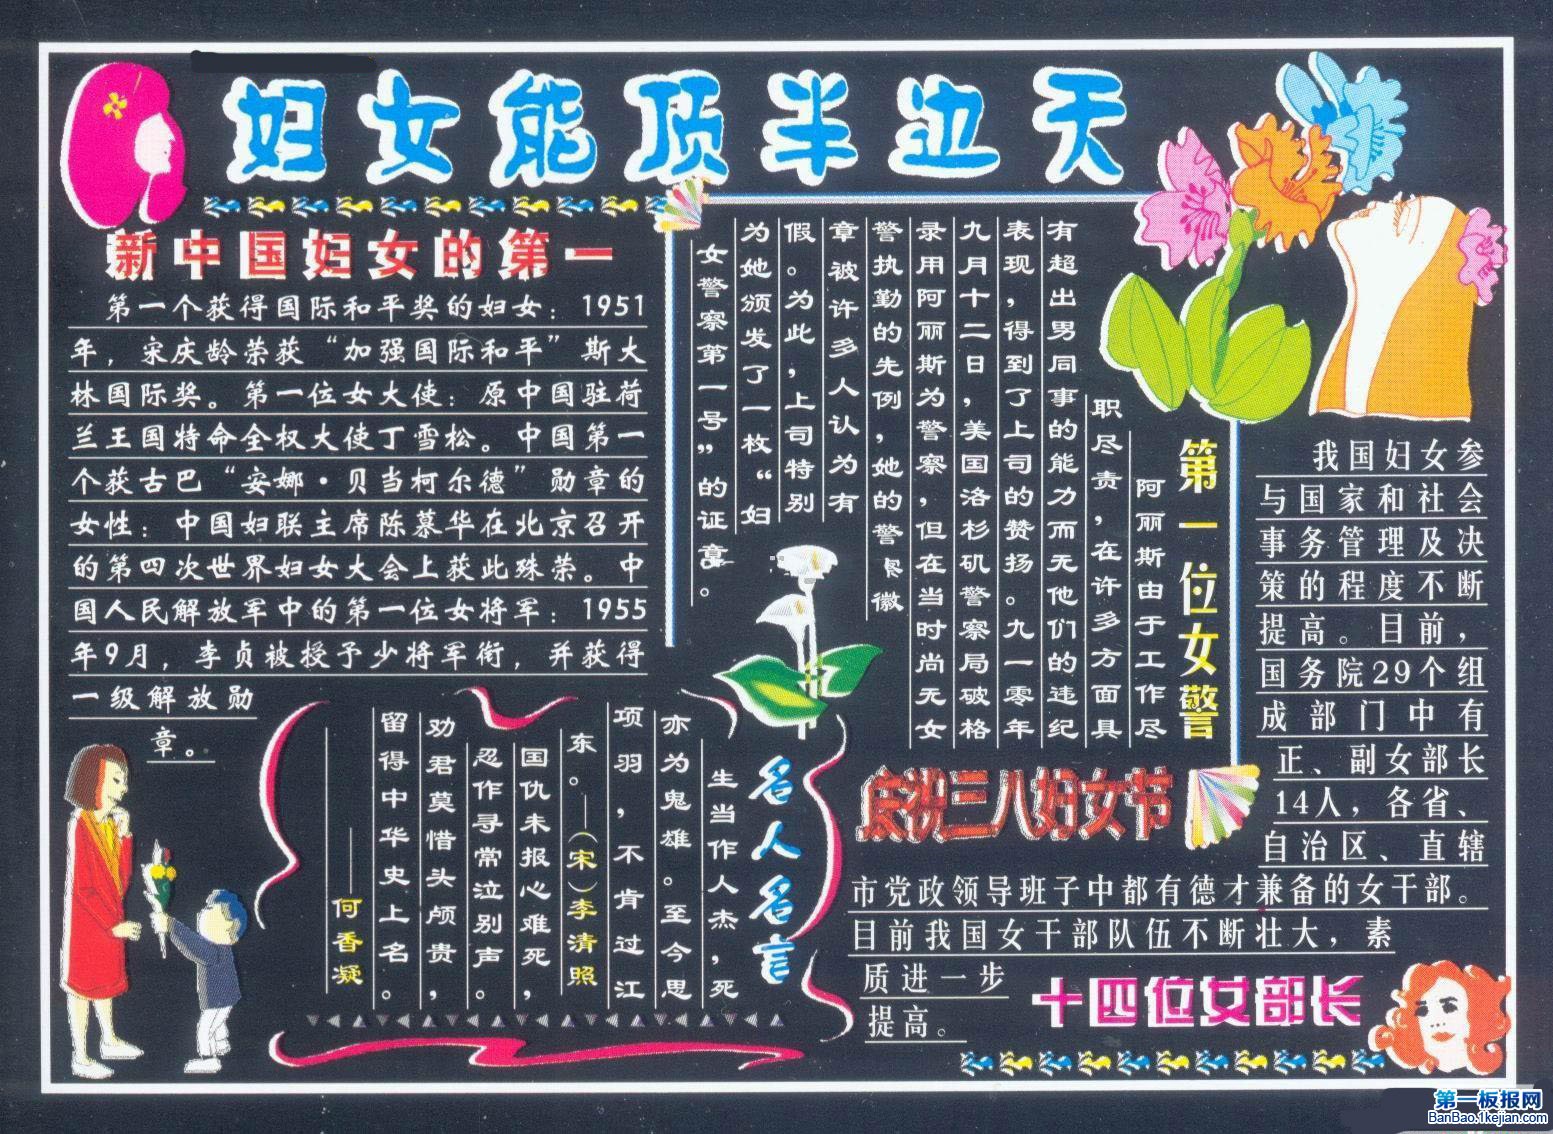 妇女能顶半边天
新中国妇女的第一
第一个获得国际和平奖的妇女：1951
年，宋庆龄荣获“加强国际和平”斯大
林国际奖。第一位女大使：原中国驻荷
兰王国特命全权大使丁雪松。中国第一
个获古巴“安娜·贝当柯尔德”勋章的
女性：中国妇联主席陈慕华在北京召开
的第四次世界妇女大会上获此殊荣。中
国人民解放军中的第一位女将军：1955
年9月，李贞被授予少将军衔，并获得
一级解放勋
章。
第一位女警
阿丽斯由于工作尽
职尽责，在许多方面具
有超出男同事的能力而无他们的违纪
表现，得到了上司的赞扬。九一零年
九月十二日，美国洛杉矶警察局破格
录用阿丽斯为警察，但在当时尚无女
警执勤的先例，她的警徽
章被许多人认为有
假。为此，上司特别
为她颁发了一枚“妇
女警察第一号”的证章。
名人名言
生当作人杰，死
亦为鬼雄。至今思
项羽，不肯过江
东。——（宋）李清照
国仇未报心难死，
忍作寻常泣别声。
劝君莫惜头颅贵，
留得中华史上名。
——何香凝
庆祝三八妇女节
我国妇女参
与国家和社会
事务管理及决
策的程度不断
提高。目前，
国务院29个组
成部门中有
正、副女部长
14人，各省、
自治区、直辖
市党政领导班子中都有德才兼备的女干部。
目前我国女干部队伍不断壮大，素
质进一步
提高。
十四位女部长
第一板报网
BanBao.1kejian.com